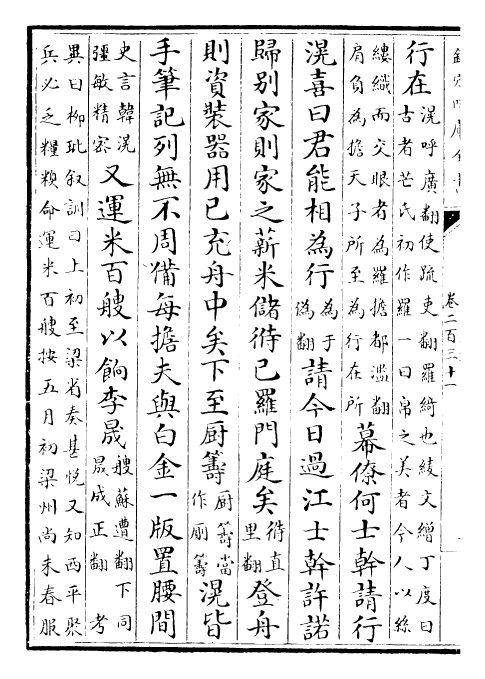 欽定四庫全書
卷二百三十一
行在滉呼廣翻使疏吏翻羅綺也綾文繒丁度曰
古者芒氏初作羅一曰帛之美者今人以絲
縷織而交眼者為羅擔都濫翻
肩負為擔天子所至為行在所幕僚何士幹請行
滉喜曰君能相為行為于偽翻請今日過江士幹許諾
歸别家則家之薪米儲偫已羅門庭矣偫直里翻登舟
則資裝器用已充舟中矣下至厨籌厨籌當作厠籌滉皆
手筆記列無不周備每擔夫與白金一版置腰間
史言韓滉彊敏精密又運米百艘以餉李晟艘蘇遭翻下同晟成正翻考
異曰柳玭叙訓曰上初至梁省奏甚悅又知西平聚
兵必乏糧糗命運米百艘按五月初梁州尚未春服